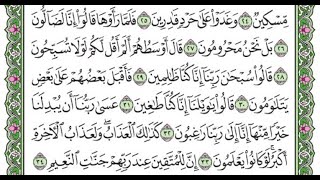 مِّسْكِينٌ ﴿٢٤﴾ وَغَدَوْا۟ عَلَىٰ حَرْدٍ قَٰدِرِينَ ﴿٢٥﴾ فَلَمَّا رَأَوْهَا قَالُوٓا۟ إِنَّا لَضَآلُّونَ
﴿٢٦﴾ بَلْ نَحْنُ مَحْرُومُونَ ﴿٢٧﴾ قَالَ أَوْسَطُهُمْ أَلَمْ أَقُل لَّكُمْ لَوْلَا تُسَبِّحُونَ
﴿٢٨﴾ قَالُوا۟ سُبْحَٰنَ رَبِّنَآ إِنَّا كُنَّا ظَٰلِمِينَ ﴿٢٩﴾ فَأَقْبَلَ بَعْضُهُمْ عَلَىٰ بَعْضٍ
يَتَلَٰوَمُونَ ﴿٣٠﴾ قَالُوا۟ يَٰوَيْلَنَآ إِنَّا كُنَّا طَٰغِينَ ﴿٣١﴾ عَسَىٰ رَبُّنَآ أَن يُبْدِلَنَا
خَيْرًا مِّنْهَآ إِنَّآ إِلَىٰ رَبِّنَا رَٰغِبُونَ ﴿٣٢﴾ كَذَٰلِكَ ٱلْعَذَابُ ۖ وَلَعَذَابُ ٱلْءَاخِرَةِ
أَكْبَرُ ۚ لَوْ كَانُوا۟ يَعْلَمُونَ ﴿٣٣﴾ إِنَّ لِلْمُتَّقِينَ عِندَ رَبِّهِمْ جَنَّٰتِ ٱلنَّعِيمِ ﴿٣٤﴾